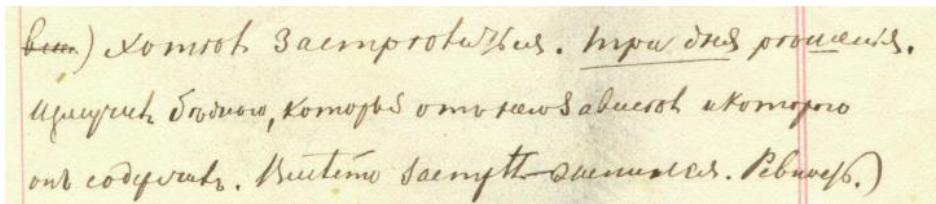 вш.) Хотѣлъ застрѣлиться. Три дня рѣшенія.
Измучилъ бѣднаго, который отъ него зависѣлъ и котораго
онъ содержалъ. Вмѣсто застрѣ женился. Ревность.)